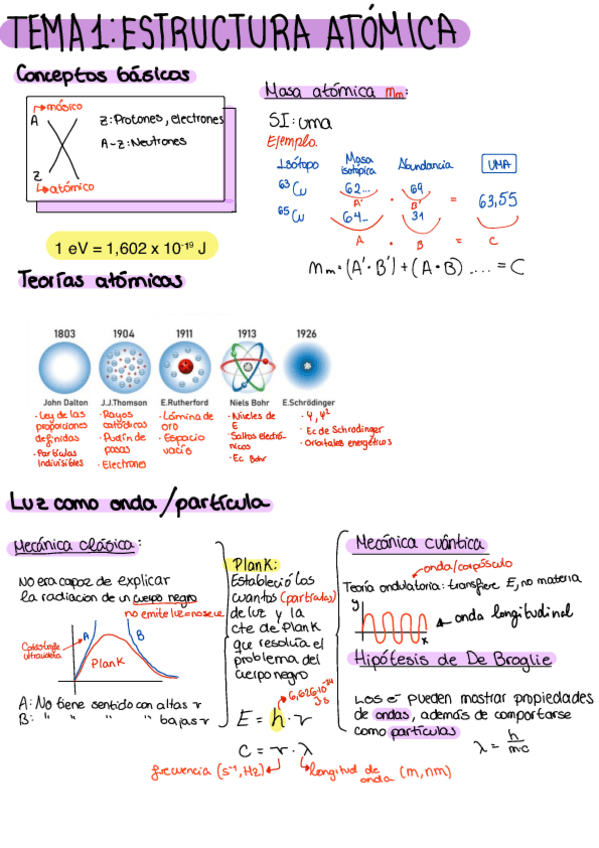 TEMA 1: ESTRUCTURA ATÓMICA
Conceptos básicos
→másico
A
Z: Protones, electrones
A-Z: Neutrones
Z
↳atómico
1 eV = 1,602 x 10⁻¹⁹ J
Masa atómica Mm:
SI: uma
Ejemplo.
Isótopo Masa isotópica Abundancia UMA
⁶³Cu 62... · 69 = 63,55
A' B'
⁶⁵Cu 64... 31
A · B = C
Mm = (A'·B') + (A·B) .... = C
Teorías atómicas
1803 1904 1911 1913 1926
John Dalton J.J.Thomson E.Rutherford Niels Bohr E.Schrödinger
· Ley de las
proporciones
definidas
· Partículas
Indivisibles
· Rayos
catódicos
· Pudin de
pasas
· Electrones
· Lámina de
oro
· Espacio
vacío
· Niveles de
E
· Saltos electró-
nicos
· Ec Bohr
· Ψ, Ψ²
· Ec de Schrodinger
· Orbitales energéticos
Luz como onda/partícula
Mecánica clásica:
NO era capaz de explicar
la radiacion de un cuerpo negro
no emite luz
Catástrofe
ultravioleta
A
B
Plank
A: No tiene sentido con altas ν
B: " " " " bajas ν
Plank:
Estableció los
cuantos (partículas)
de luz y la
cte de Plank
que resolvía el
problema del
cuerpo negro
E = h · ν
J·s
C = ν · λ
frecuencia (s⁻¹, Hz)
longitud de
onda (m, nm)
Mecánica cuántica
onda/corpúsculo
Teoría ondulatoria: transfiere E, no materia
y
x
onda longitudinal
Hipótesis de De Broglie
Los e⁻ pueden mostrar propiedades
de ondas, además de comportarse
como partículas
λ = h/mc